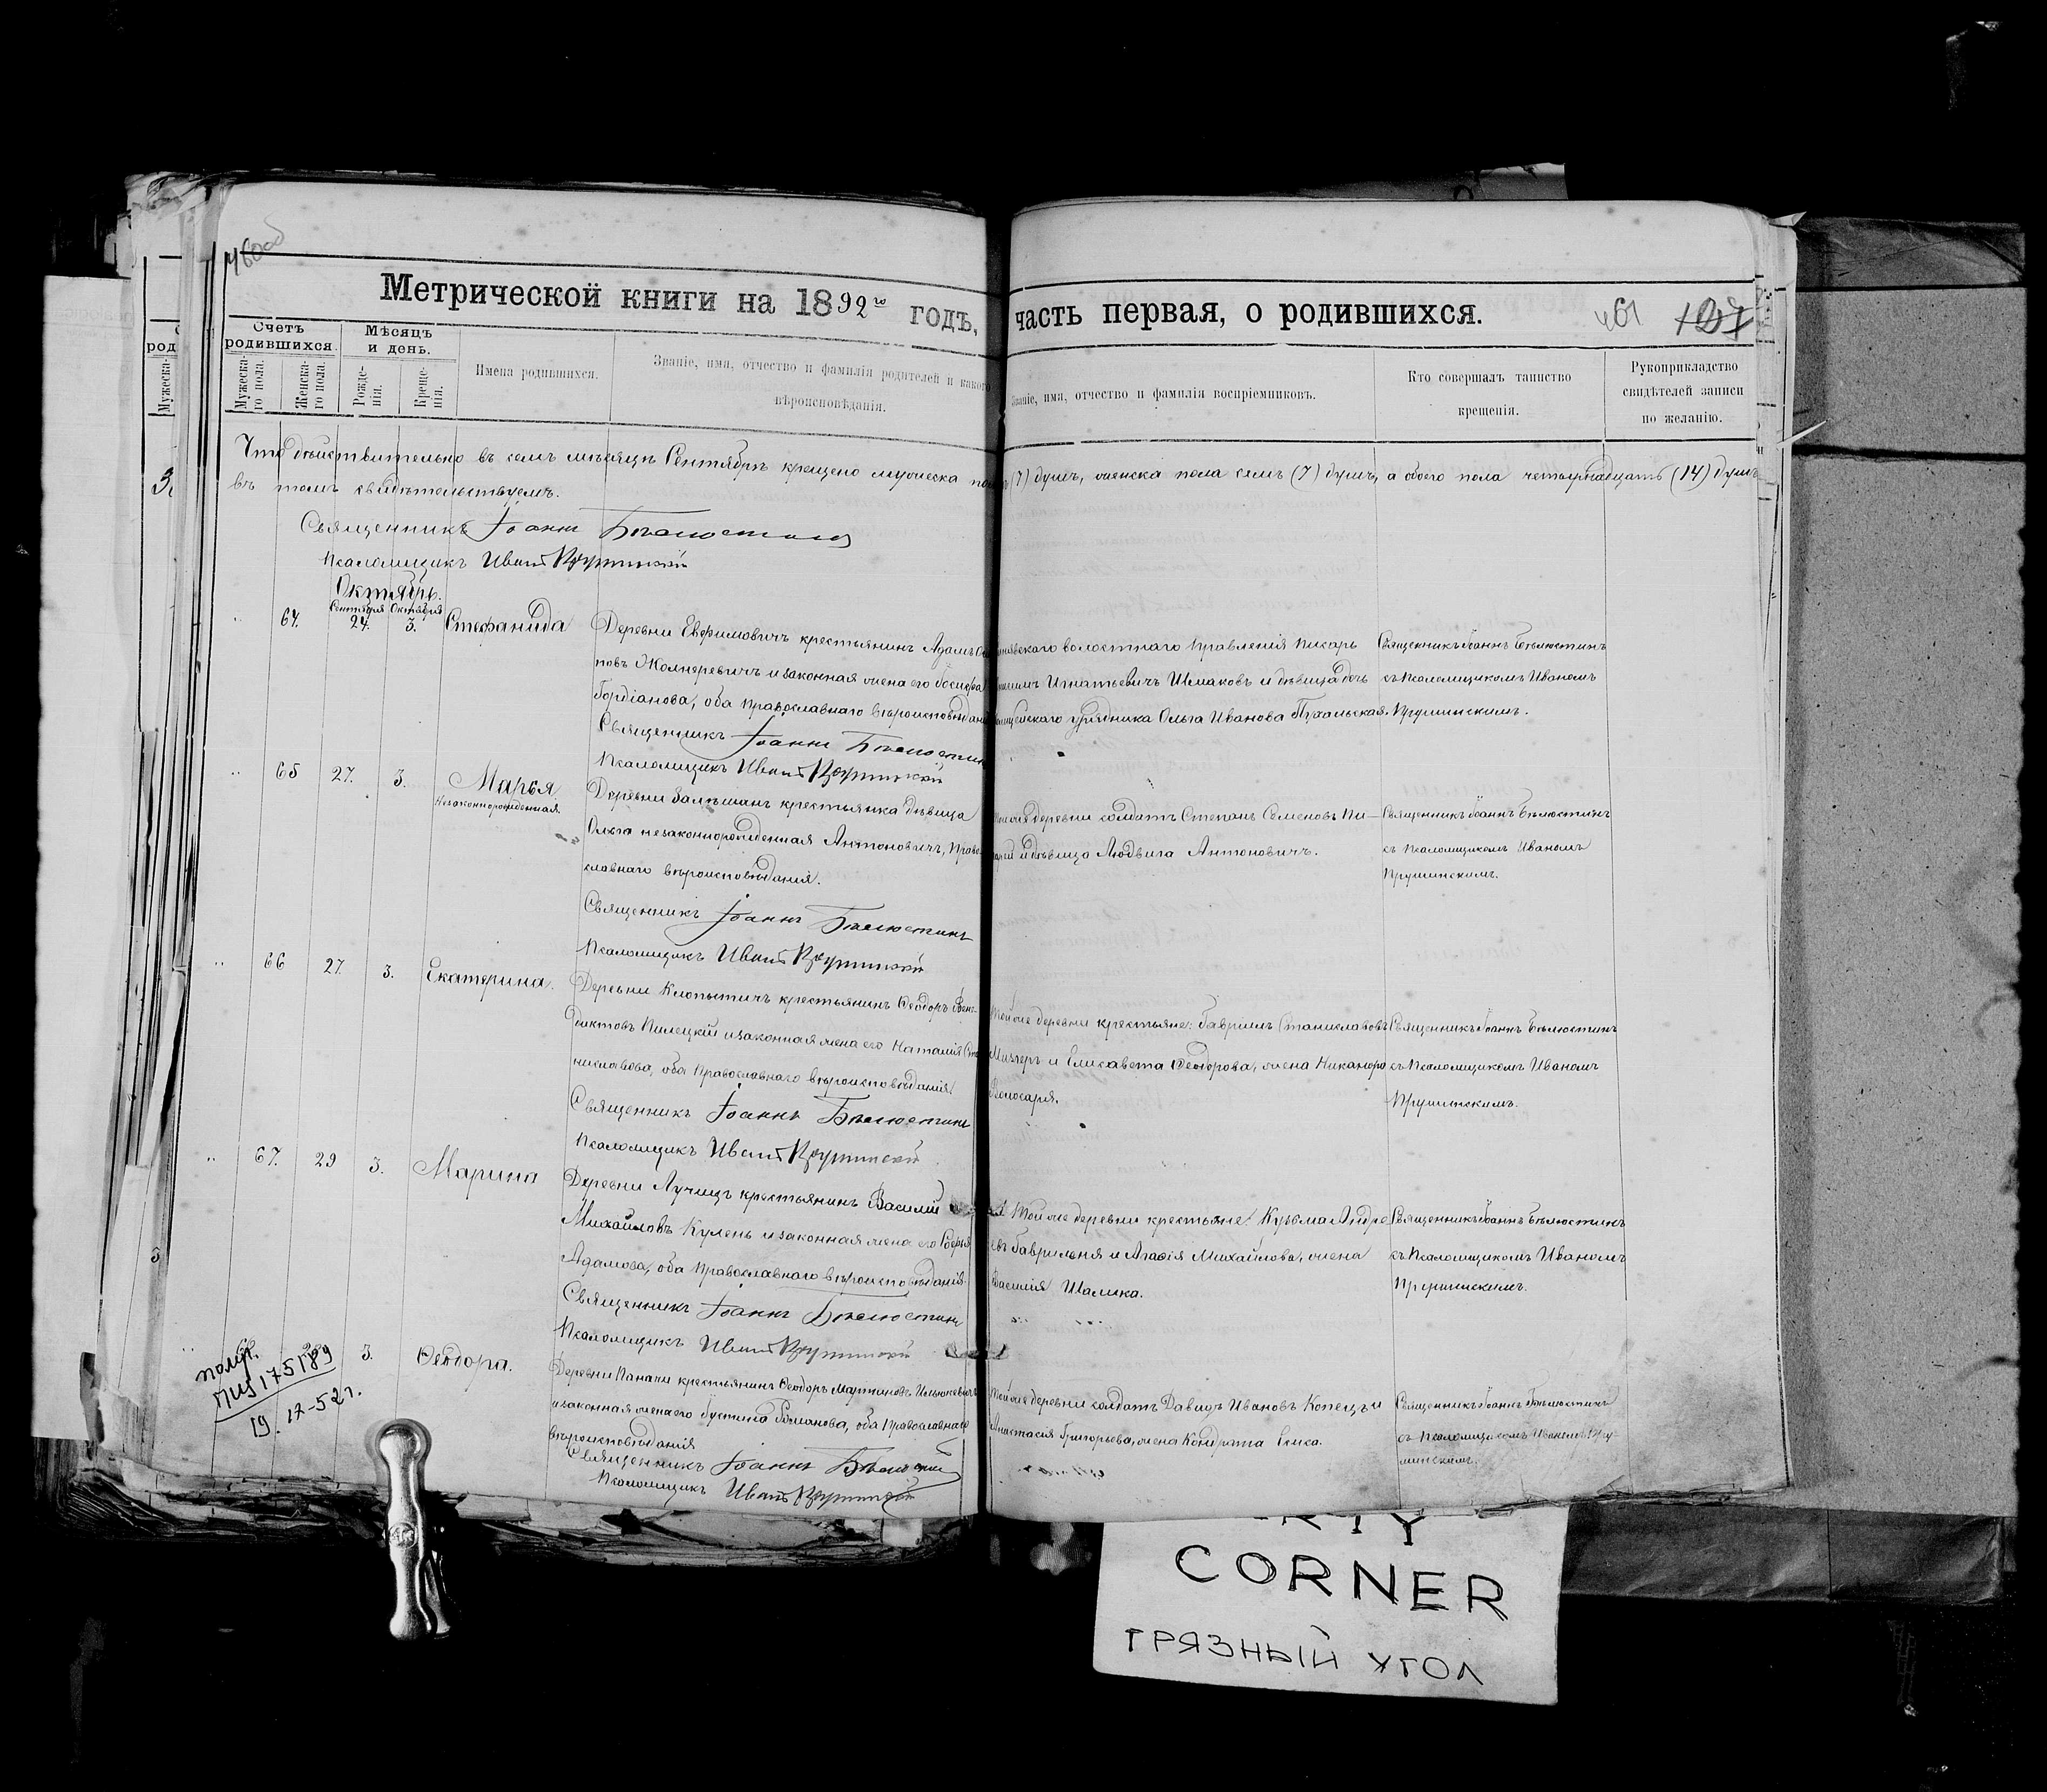 460об
Метрической книги на 1892го годъ, часть первая, о родившихся.
461 127
Счетъ родившихся.
Мѣсяцъ и день.
Мужеска-го пола.
Женска-го пола.
Рожде-нія.
Креще-нія.
Имена родившихся.
Званіе, имя, отчество и фамилія родителей и какого
вѣроисповѣданія.
Званіе, имя, отчество и фамилія воспріемниковъ.
Кто совершалъ таинство
крещенія.
Рукоприкладство
свидѣтелей записи
по желанію.
Что дѣйствительно въ семъ мѣсяцѣ Сентябрѣ крещено мужеска (7) душъ, женска пола семь (7) душъ, а обоего пола четырнадцать (14) душъ
въ томъ свидѣтельствуемъ.
Священникъ Іоаннъ Бѣлюстинъ
Псаломщикъ Иванъ Прушинскій
Октябрь.
Сентября Октября
64. 24. 3. Стефанида
Деревни Евфимовичъ крестьянинъ Адамъ
повъ Жолнеревичъ и законная жена его
Гордіанова, оба православнаго вѣроисповѣданія
Священникъ Іоаннъ Бѣлюстинъ
Псаломщикъ Иванъ Прушинскій
волостнаго правленія писарь
Игнатьевичъ Шмаковъ и дѣвица дочь
урядника Ольга Иванова Пухальская.
Священникъ Іоаннъ Бѣлюстинъ
съ псаломщикомъ Иваномъ
Прушинскимъ.
65 27. 3. Марья
Незаконнорожденная.
Деревни крестьянка дѣвица
Ольга незаконнорожденная Антоновичъ, Право-
славнаго вѣроисповѣданія.
Священникъ Іоаннъ Бѣлюстинъ
Псаломщикъ Иванъ Прушинскій
деревни солдатъ Степанъ Семеновъ
и дѣвица Людвига Антоновичъ.
Священникъ Іоаннъ Бѣлюстинъ
съ псаломщикомъ Иваномъ
Прушинскимъ.
66 27. 3. Екатерина.
Деревни Клопытичъ крестьянинъ Ѳеодоръ Вене-
диктовъ Пилецкій и законная жена его Наталія Ста
ниславова, оба православнаго вѣроисповѣданія.
Священникъ Іоаннъ Бѣлюстинъ
Псаломщикъ Иванъ Прушинскій
Той же деревни крестьяне: Гавріилъ Станиславовъ
и Елисавета Ѳеодорова, жена Никанора
Священникъ Іоаннъ Бѣлюстинъ
съ псаломщикомъ Иваномъ
Прушинскимъ.
67. 29 3. Марина
Деревни Лучицъ крестьянинъ Василій
Михайловъ Кулень и законная жена его Софья
Адамова, оба православнаго вѣроисповѣданія.
Священникъ Іоаннъ Бѣлюстинъ
Псаломщикъ Иванъ Прушинскій
Той же деревни крестьяне: Кузьма Андре
евъ и Агафія Михайлова, жена
Василія Шалика.
Священникъ Іоаннъ Бѣлюстинъ
съ псаломщикомъ Иваномъ
Прушинскимъ.
3. Ѳеодора.
175189
19. 12-52 г.
Деревни крестьянинъ Ѳеодоръ Мартиновъ
и законная жена его Іустина Романова, оба православнаго
вѣроисповѣданія
Священникъ Іоаннъ Бѣлюстинъ
Псаломщикъ Иванъ Прушинскій
Той же деревни солдатъ Давидъ Ивановъ Копецъ и
Анастасія Григорьева, жена Кондрата
Священникъ Іоаннъ Бѣлюстинъ
съ псаломщикомъ Иваномъ Пру-
шинскимъ.
CORNER
ГРЯЗНЫЙ УГОЛ